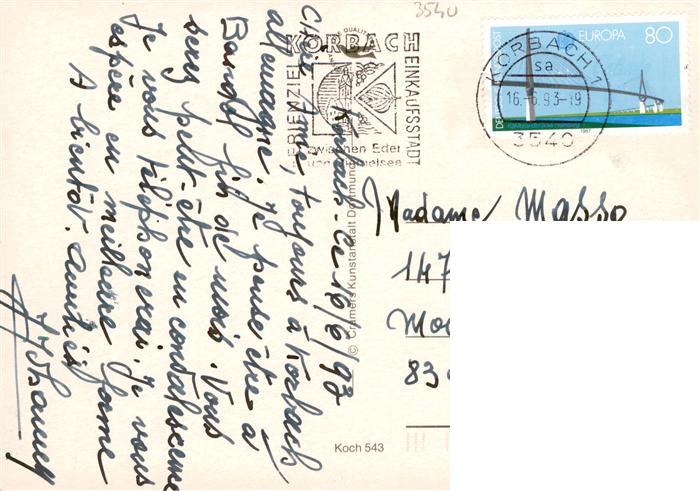 Korbach. Le 16/6/93
Chère Amie, toujours à Korbach
allemagne. Je pense être à
Bandol fin de mois. Vous
serez petit être en convalescence
Je vous téléphonerai. Je vous
espère en meilleure forme
A bientôt. amitiés
3540
FERIENZIEL
KORBACH
EINKAUFSSTADT
zwischen Eder
und Diemelsee
KORBACH 1
sa
16.-6.93-19
3540
EUROPA 80
1987
Madame Masso
147
Mo
83
© Cramers Kunstanstalt Dortmund
Koch 543